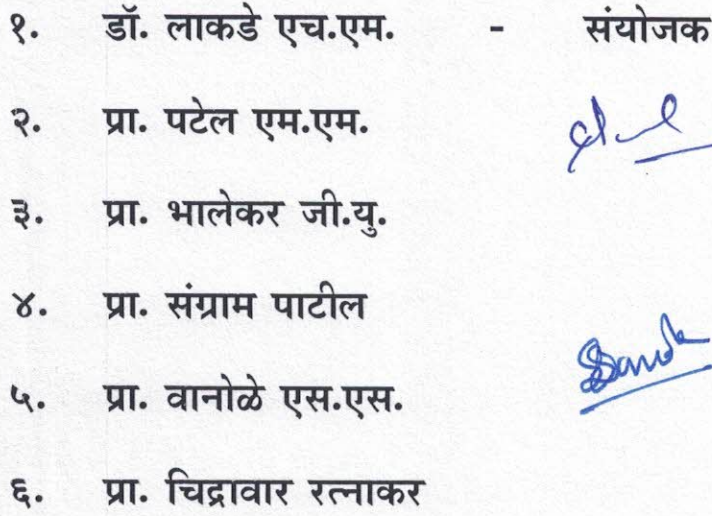 १. डॉ. लाकडे एच.एम. - संयोजक
२. प्रा. पटेल एम.एम.
३. प्रा. भालेकर जी.यु.
४. प्रा. संग्राम पाटील
५. प्रा. वानोळे एस.एस.
६. प्रा. चिद्रावार रत्नाकर